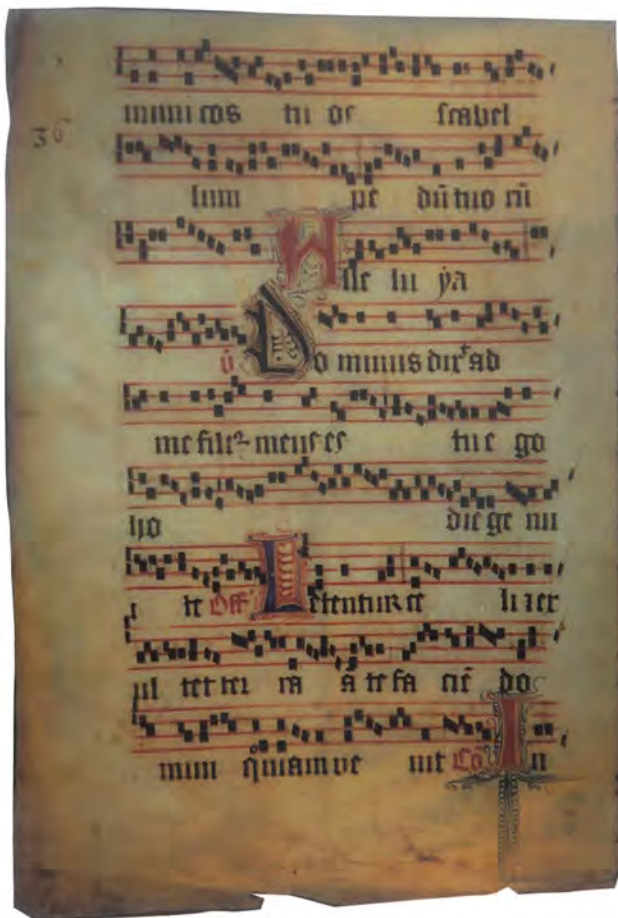 36
mini cos tu os scabel
lum pe dū tuo rū
Alle lu ya
v̄ Do minus dix ad
me fili meus es tu e go
ho die ge nu
i te Off Letentur ce li et ex
ul tet ter ra ā te fa ciē do
mini qm̄ am ve nit Cō In